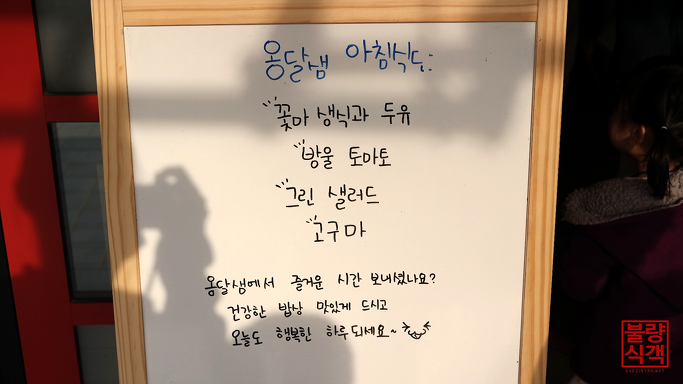 옹달샘 아침식단:
꽃마 생식과 두유
방울 토마토
그린 샐러드
고구마
옹달샘에서 즐거운 시간 보내셨나요?
건강한 밥상 맛있게 드시고
오늘도 행복한 하루되세요~
불량
식객